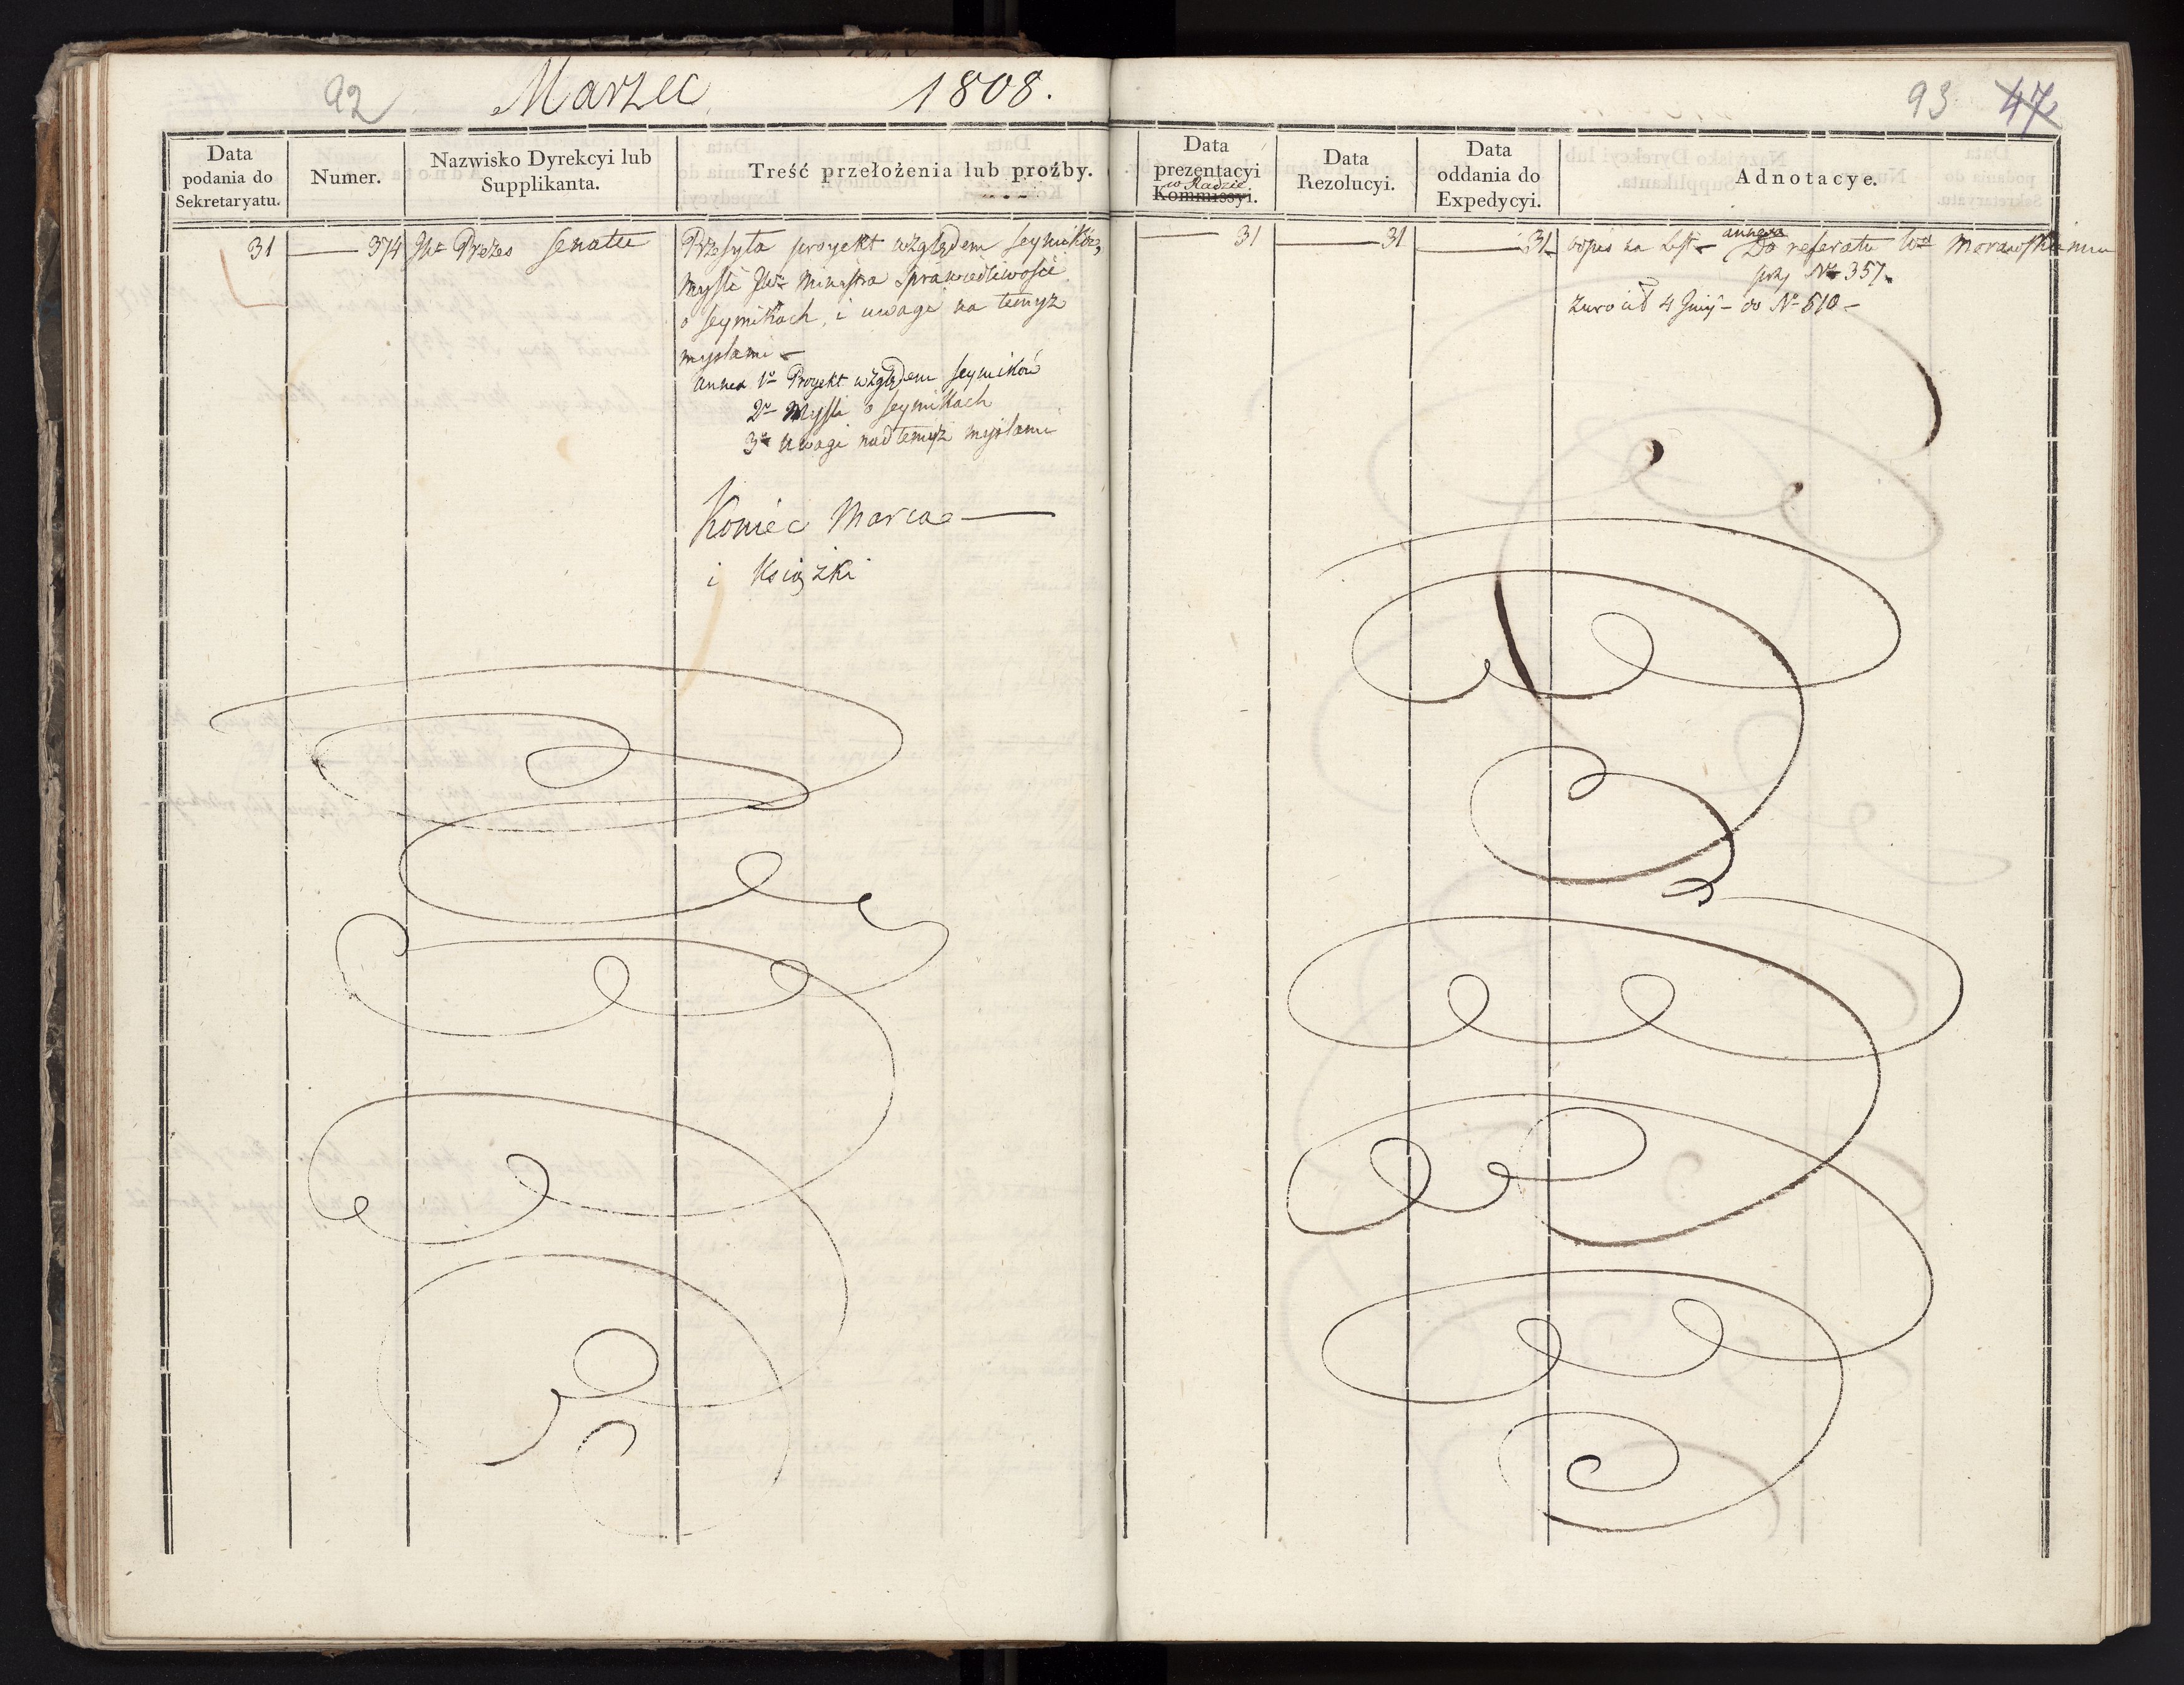 92 Marzec 1808.
Data podania do Sekretaryatu.
Numer.
Nazwisko Dyrekcyi lub Supplikanta.
Treść przełożenia lub proźby.
31 — 374 JW Prezes Senatu
Przesyła proyekt względem seymików,
mysli JW Ministra Sprawiedliwości
o seymikach, i uwagi na temyz
myslami —
annex 1º Proyekt względem seymików
2º Mysli o seymikach
3º Uwagi nad temyż myslami
Koniec Marca —
i Książki
93 47
Data prezentacyi
w Radzie
Kommissyi.
Data Rezolucyi.
Data oddania do Expedycyi.
Adnotacye.
— 31 — 31 — 31
odpis na List — annexa Do referatu Morawskiemu
przy Nº 357.
zwrócił 4 — do Nº 510 —